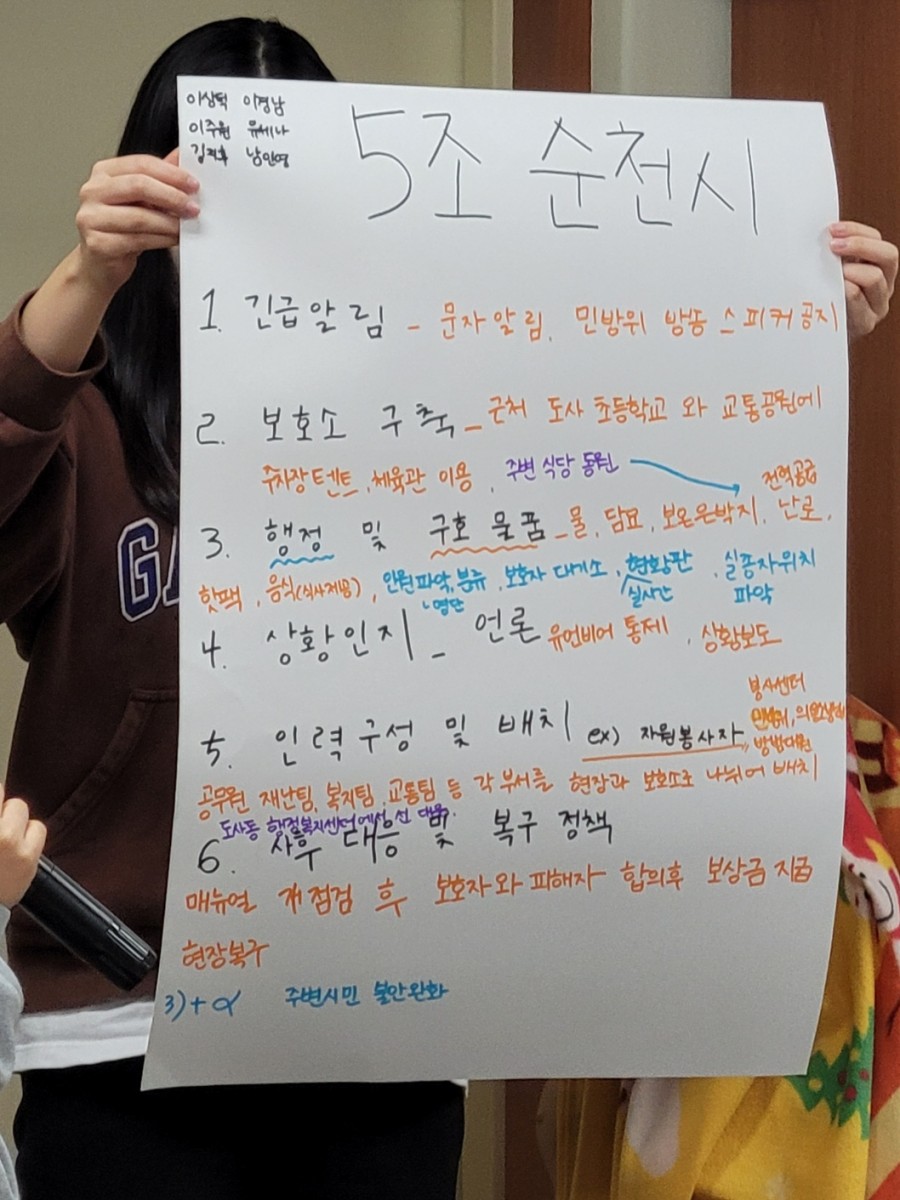 이상덕 이경남
이주원 유세나
김지후 남인영
5조 순천시
1. 긴급알림 - 문자알림, 민방위 방송 스피커 공지
2. 보호소 구축 - 근처 도사 초등학교 와 교통공원에
주차장 텐트, 체육관 이용, 주변 식당 동원
전력공급
3. 행정 및 구호 물품 - 물, 담요, 보온은박지, 난로,
핫팩, 음식(식사제공), 인원파악, 분류, 보호자 대기소, 현황판, 실종자위치
명단 실시간 파악
4. 상황인지 - 언론 유언비어 통제, 상황보도
봉사센터
5. 인력구성 및 배치 ex) 자원봉사자 민방위,
방범대원
공무원 재난팀, 복지팀, 교통팀 등 각 부서를 현장과 보호소로 나뉘어 배치
도사동 행정복지센터에서 선 대응.
6. 사후 대응 및 복구 정책
매뉴얼 재점검 후 보호자와 피해자 합의후 보상금 지급
현장복구
3)+α 주변시민 불안완화
GA